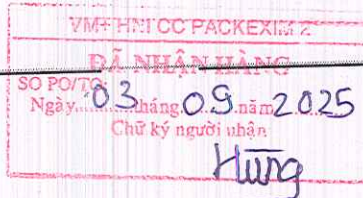 VM+ HNI CC PACKEXIM 2
ĐÃ NHẬN HÀNG
SO PO/TO
Ngày 03 tháng 09 năm 2025
Chữ ký người nhận
Hùng